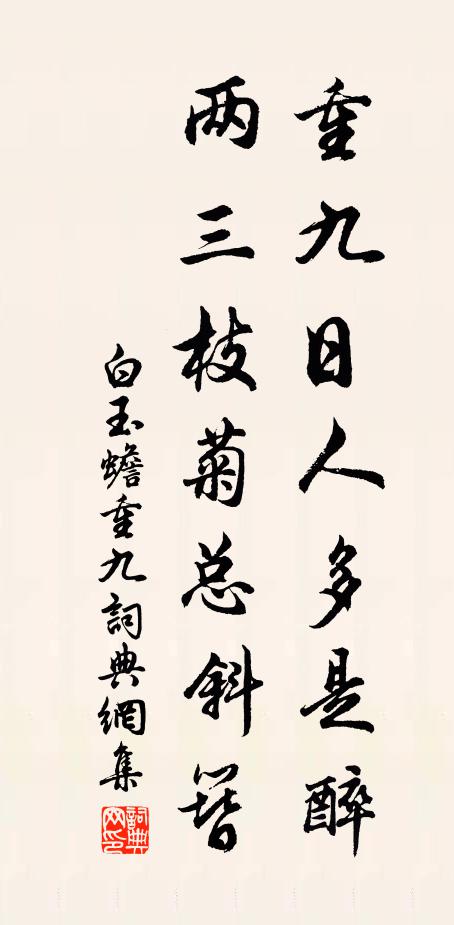 重九日人多是醉
两三枝菊总斜簪
白玉蟾重九詞典網集
詞典網印